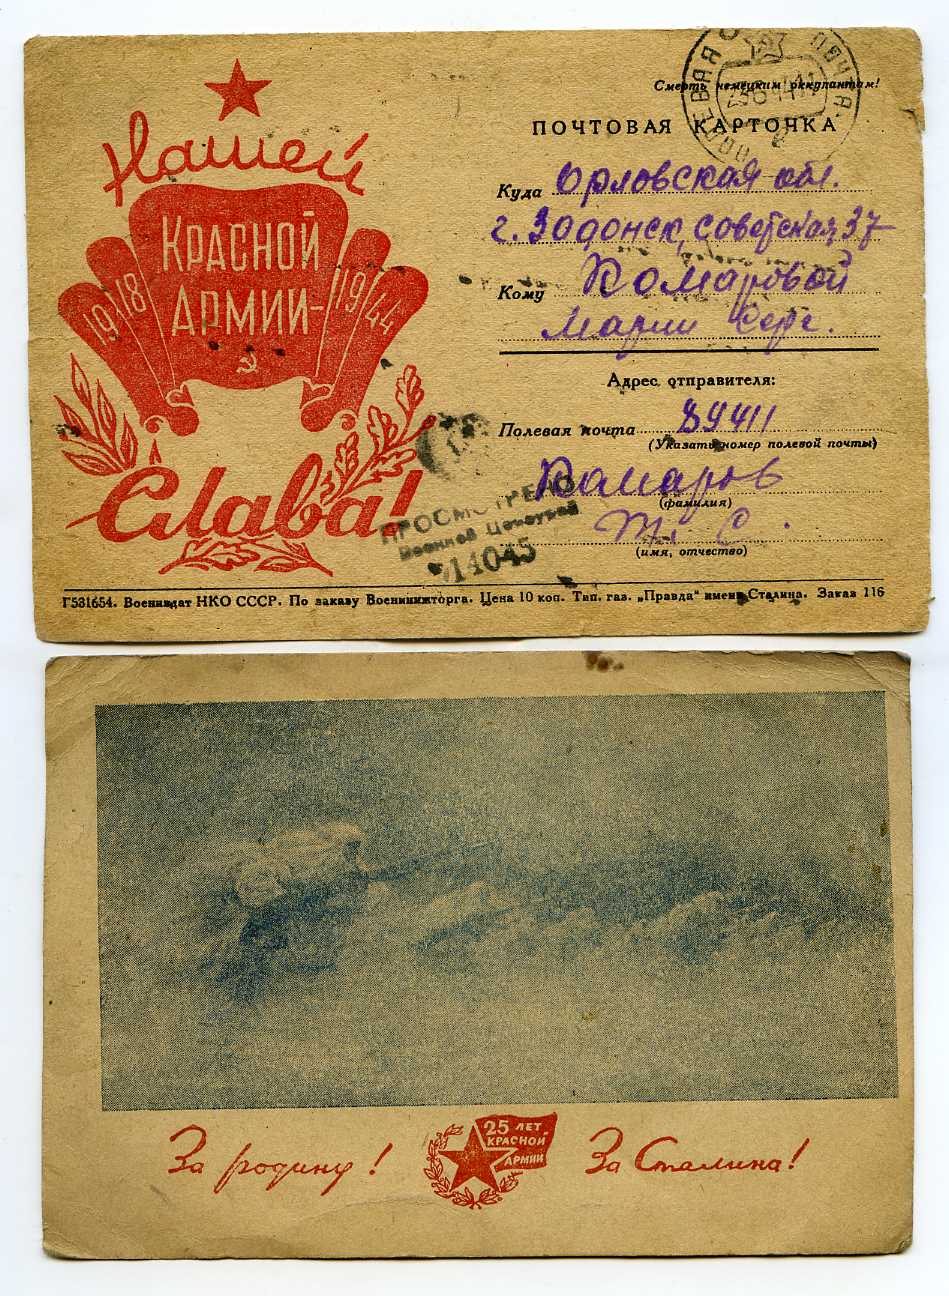 Нашей
КРАСНОЙ
АРМИИ-
1918 1944
Слава!
ПОЛЕВАЯ ПОЧТА
Смерть немецким оккупантам!
ПОЧТОВАЯ КАРТОЧКА
Куда Орловская обл.
г. Задонск, Советская, 37
Кому Комаровой
Марии Серг.
Адрес отправителя:
Полевая почта 89411
(Указать номер полевой почты)
Комаров
(фамилия)
С.
(имя, отчество)
ПРОСМОТРЕНО
Военной Цензурой
14045
Г531654. Воениздат НКО СССР. По заказу Военкнижторга. Цена 10 коп. Тип. газ. „Правда“ имени Сталина. Заказ 116
За родину! За Сталина!
25 ЛЕТ
КРАСНОЙ
АРМИИ